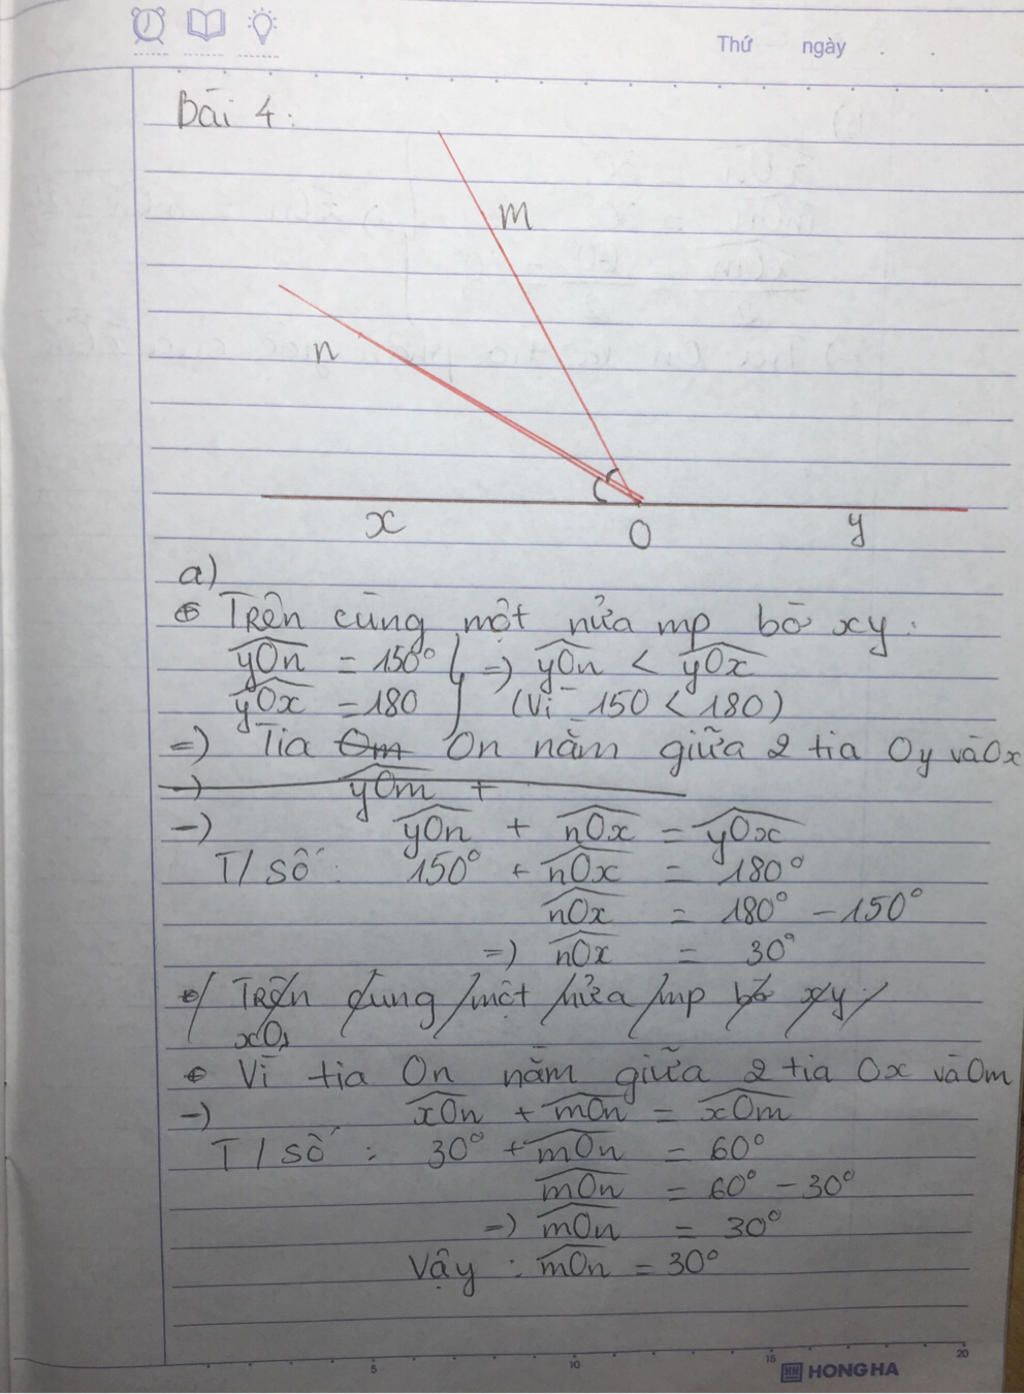 Thứ ngày . .
Bài 4:
m
n
x O y
a)
Trên cùng một nửa mp bờ xy:
yOn = 150° => yOn < yOx
yOx = 180 (Vì 150 < 180)
=> Tia Om On nằm giữa 2 tia Oy và Ox
-) yOm +
-) yOn + nOx = yOx
T/số: 150° + nOx = 180°
nOx = 180° - 150°
=) nOx = 30°
Trên cùng một nửa mp bờ xy:
xO
Vì tia On nằm giữa 2 tia Ox và Om
-) xOn + mOn = xOm
T/số: 30° + mOn = 60°
mOn = 60° - 30°
=) mOn = 30°
Vậy: mOn = 30°
5 10 15 20
HONG HA